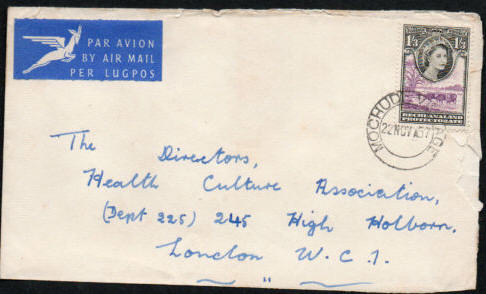 PAR AVION
BY AIR MAIL
PER LUGPOS
1/3 1/3
BECHUANALAND
PROTECTORATE
MOCHUDI
22 NOV 57
The
Directors,
Health Culture Association,
(Dept 225) 245 High Holborn,
London W.C.1.